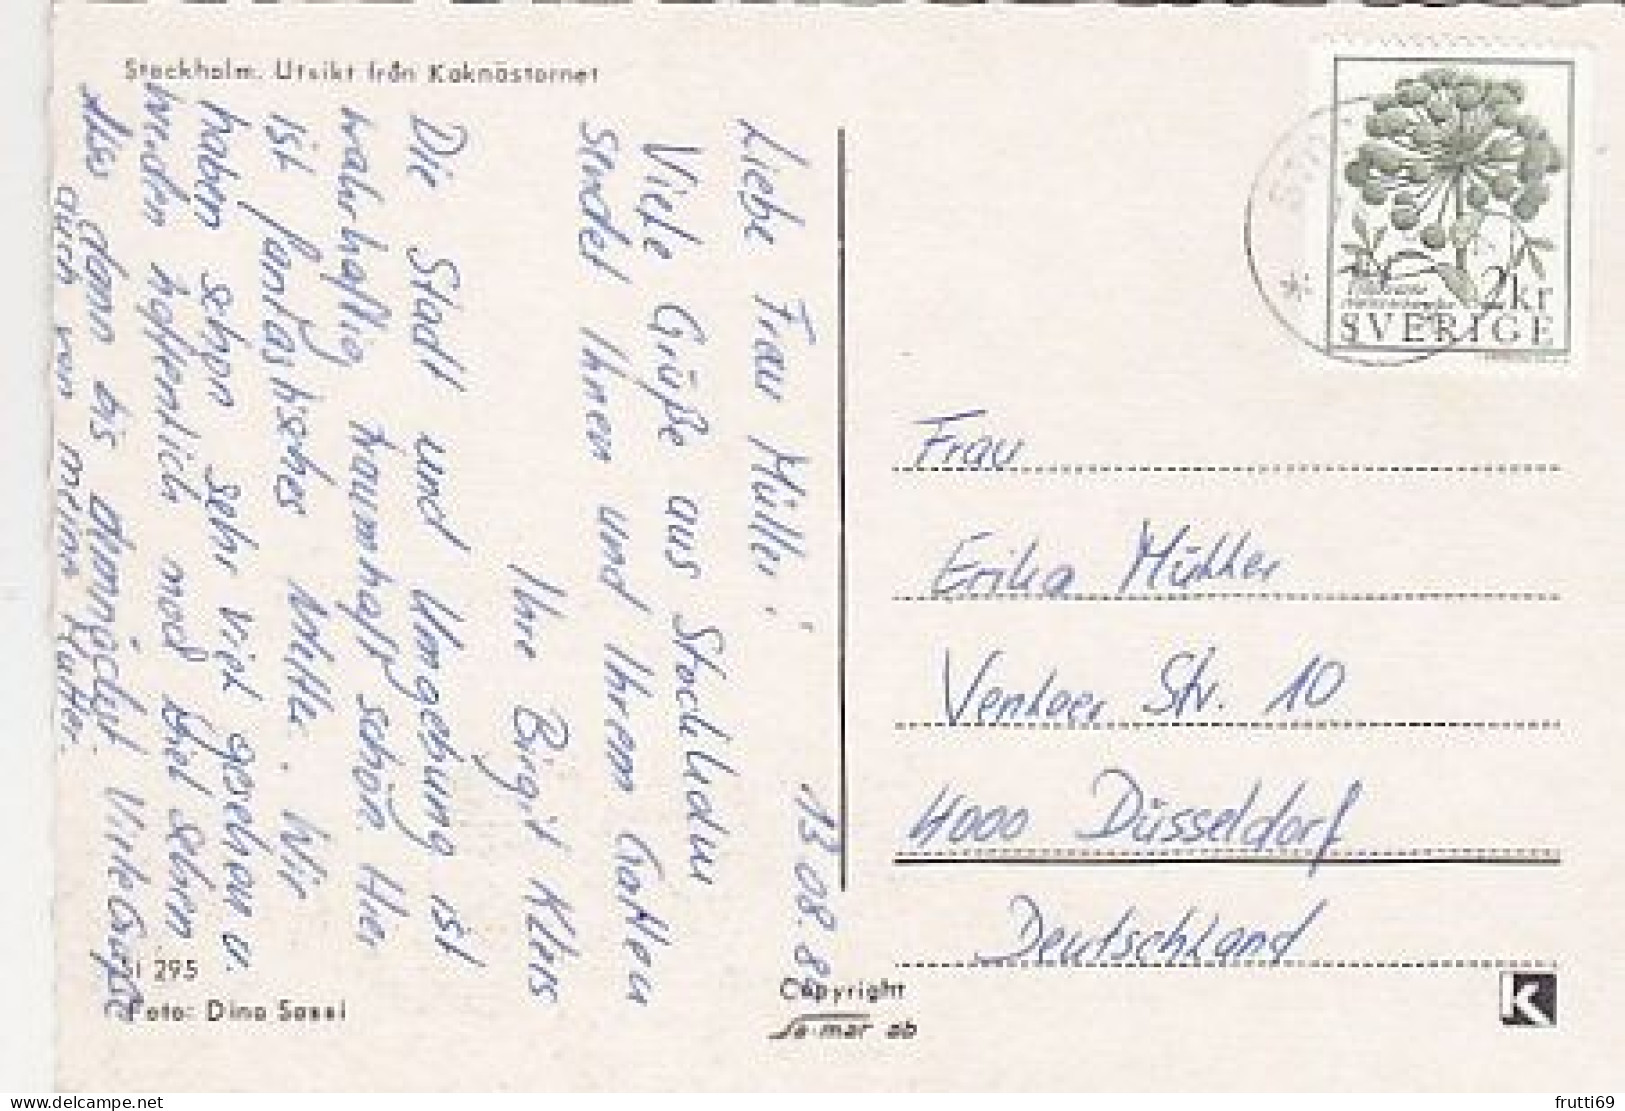 Stockholm. Utsikt från Kaknästornet
13.08.8
Liebe Frau Müller,
Viele Grüße aus Stockholm
sendet Ihnen und Ihrem Gatten
Ihre Birgit Klaus
Die Stadt und Umgebung ist
wahrhaftig traumhaft schön. Hier
ist fantastisches Wetter. Wir
haben schon sehr viel gesehen u.
werden hoffentlich noch viel sehen
Also dann bis demnächst. Viele Grüße
auch von meiner Mutter.
SI 295
Foto: Dino Sassi
Copyright
Sa-mar ab
K
2kr
SVERIGE
Frau
Erika Müller
Venloer Str. 10
4000 Düsseldorf
Deutschland
frutti69